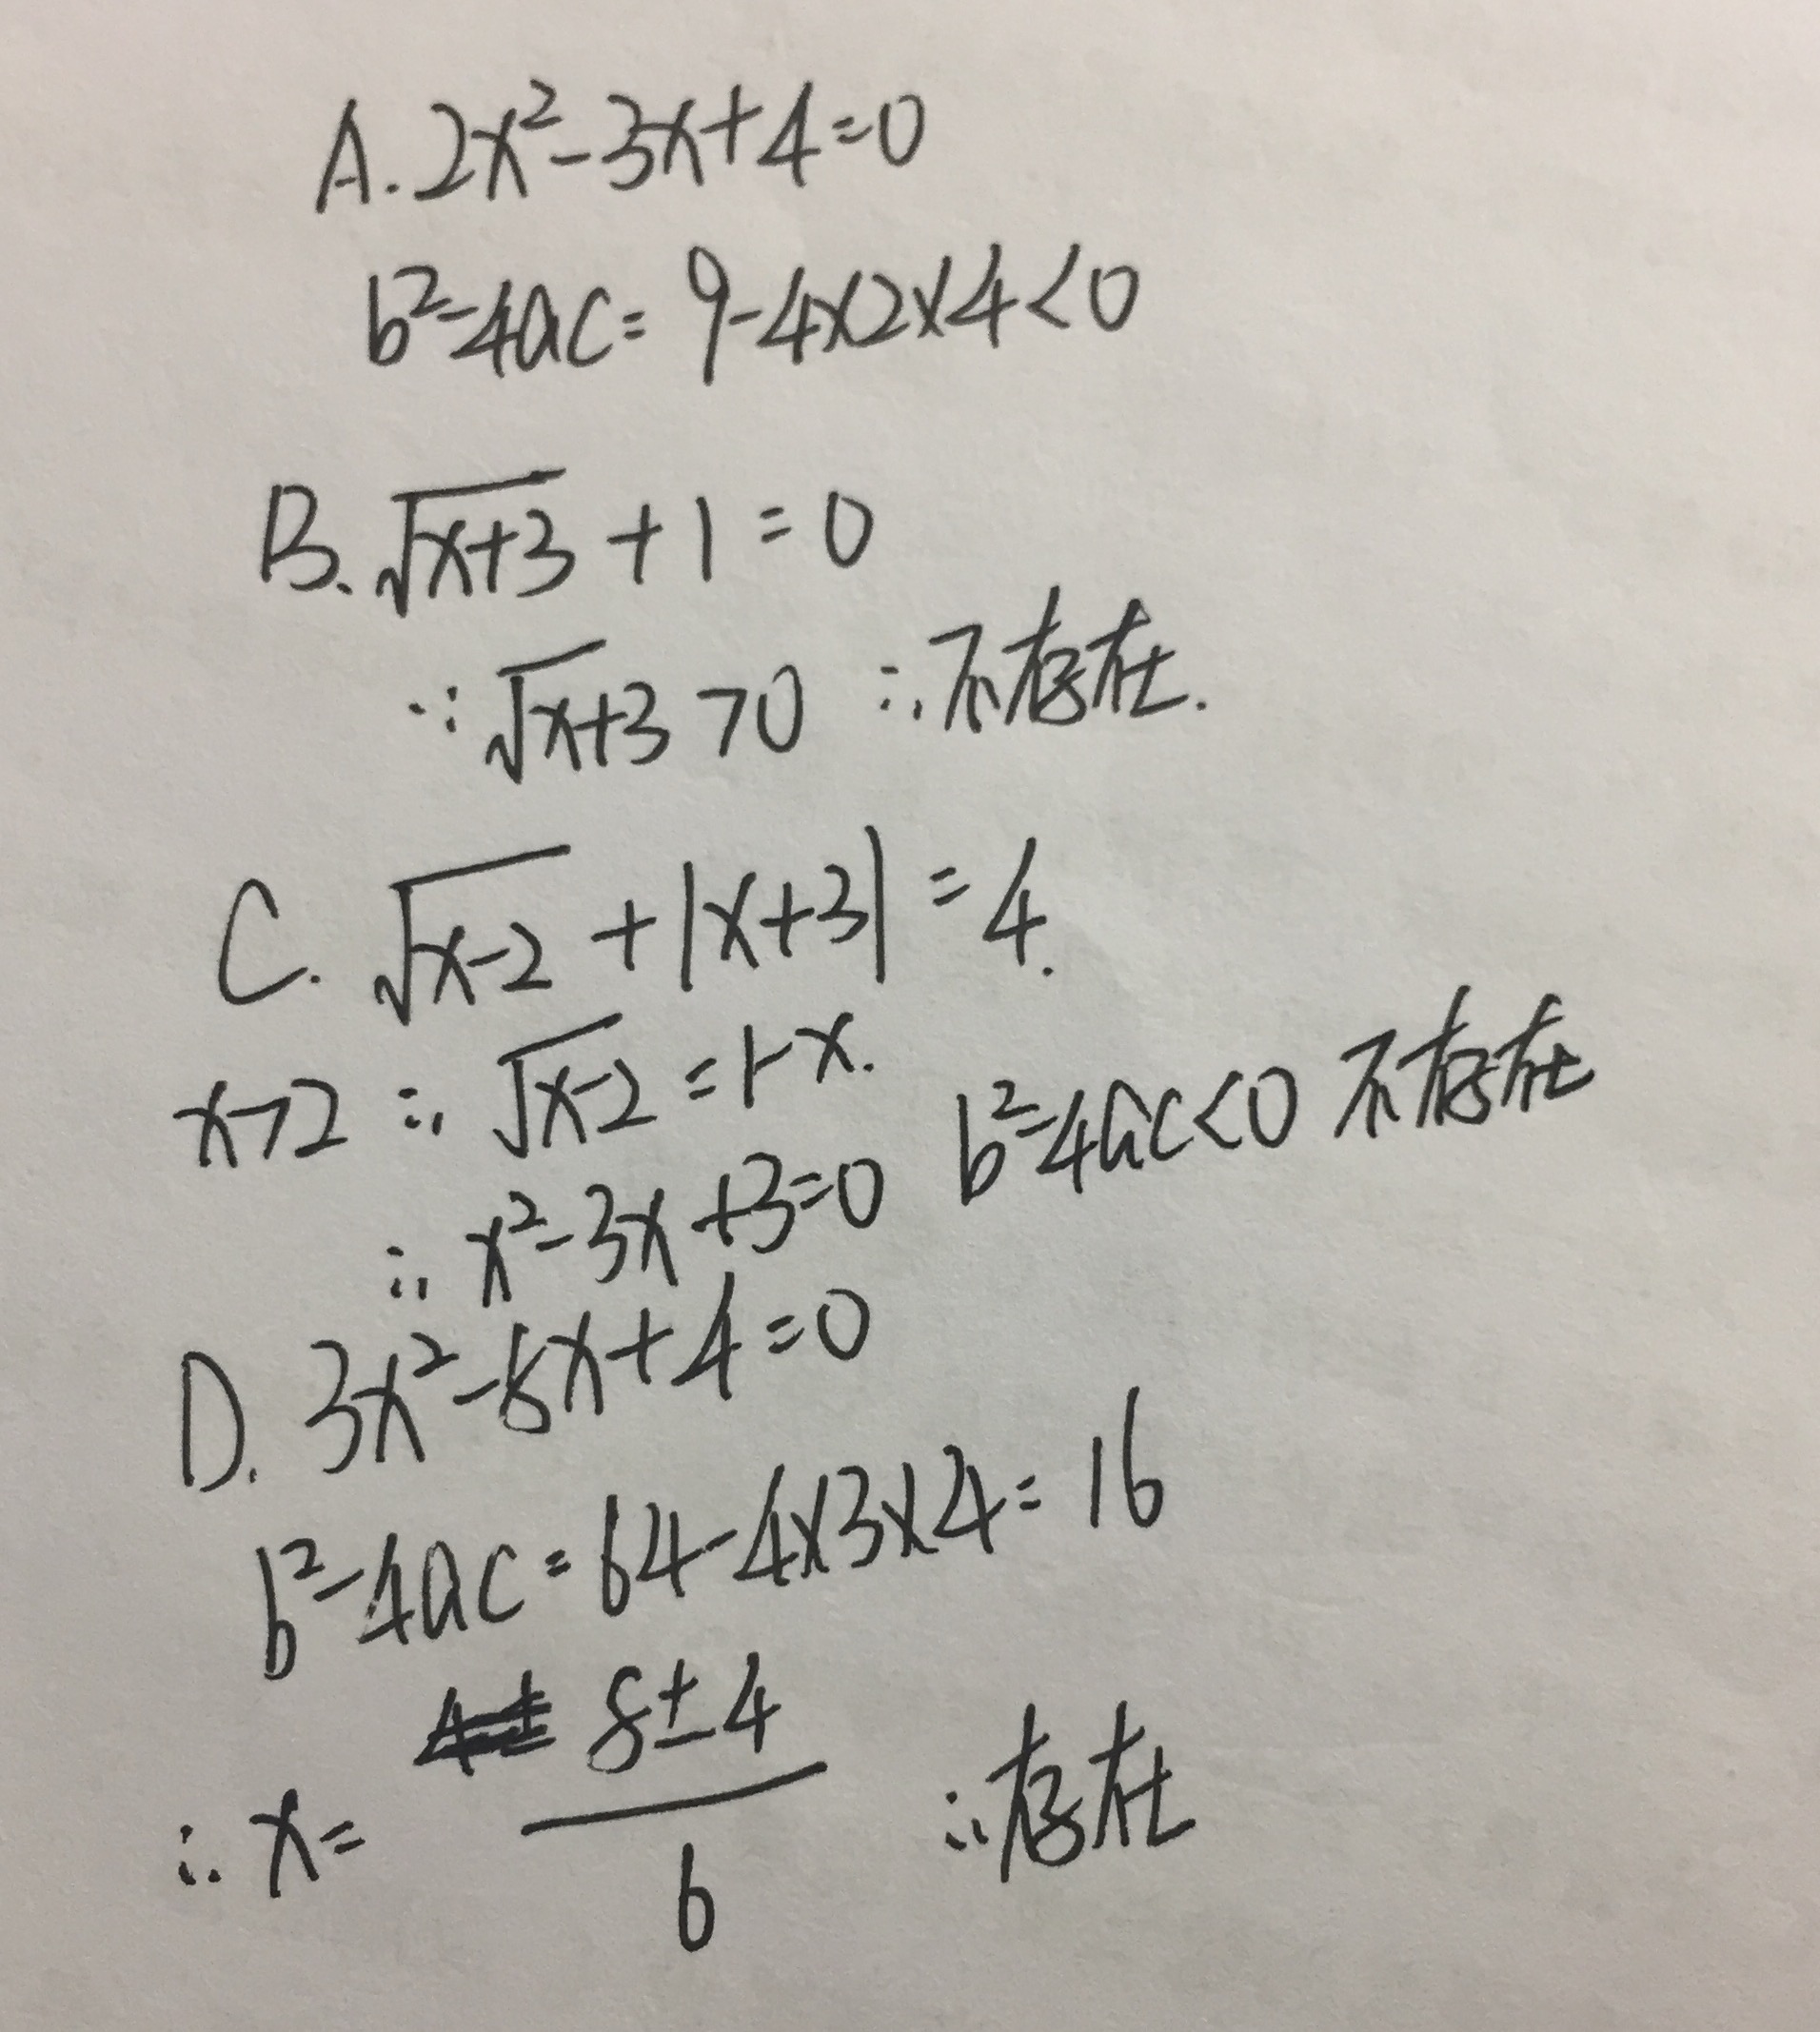 A. 2x²-3x+4=0
b²-4ac= 9-4×2×4<0
B. √(x+3) +1=0
∵ √x+3 >0 ∴不存在.
C. √(x-2) +|x+3|=4.
x>2 ∴ √(x-2) =1-x.
∴ x²-3x+3=0 b²-4ac<0 不存在
D. 3x²-8x+4=0
b²-4ac=64-4×3×4=16
∴ x= (8±4)/6 ∴存在